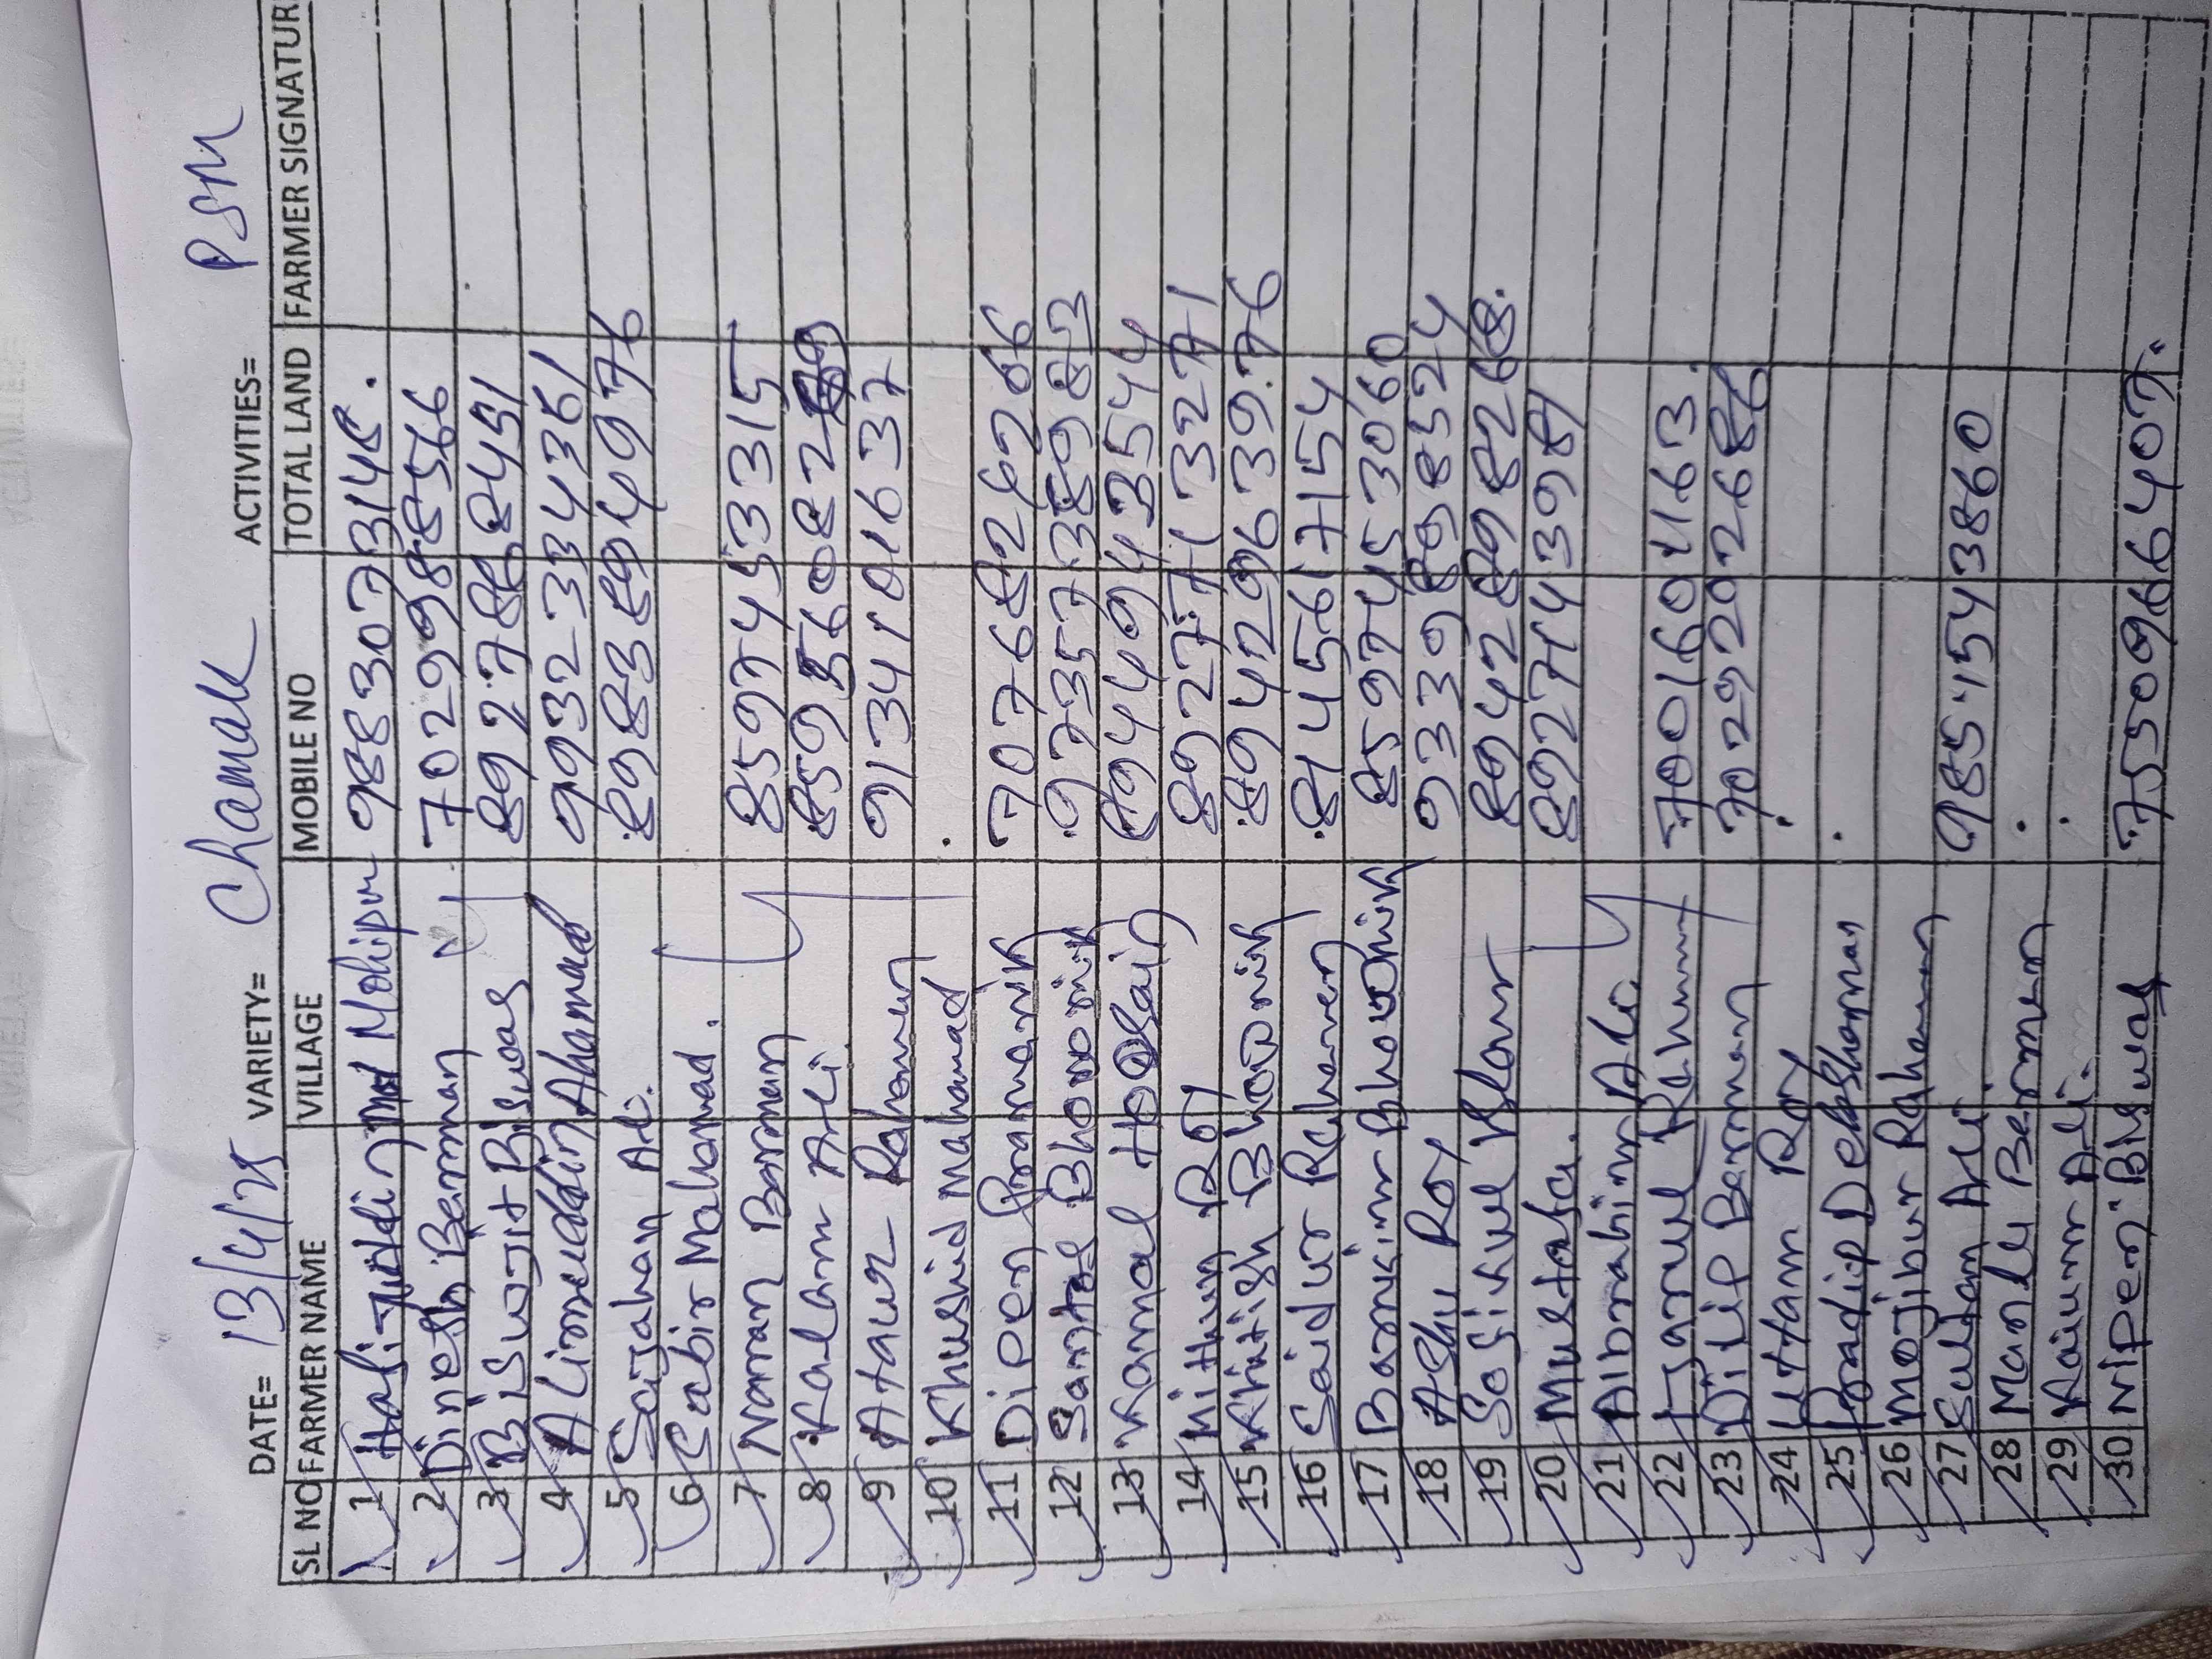 DATE= 13/4/25 VARIETY= Chamak ACTIVITIES= PSM
SL NO FARMER NAME VILLAGE MOBILE NO TOTAL LAND FARMER SIGNATURE
1 Mohipur 9883073148.
2 Dinesh Barman 7029988566
3 Biswojit Biswas 8927868451
4 Alimuddin Ahamad 9932334361
5 Saijahan Ali. 8983894976
6 Sabir Mahomad.
7 Naran Barman 8597453315
8 Kalam Ali 8595608289
9 Ataur Rahaman 9134101637
10 Khushid Mahamad
11 Dipen Pramanik 7076826266
12 Santos Bhowmik 9735738983
13 Kamal Hossain 8944943544
14 Mithun Roy 8927713271
15 Khitish Bhowmik 8942963976
16 Saidur Rahaman 8145617154
17 Bankim Bhowmik 8597453060
18 Ashu Roy 9339898524
19 Sofikul Islam 8942898268.
20 Mustafa. 8927143981
21 Ali
22 Rahaman 7001601163.
23 Dilip Barman 7029202686
24 Uttam Roy
25 Pradip Debsharman
26 Mojibur Rahaman
27 Sultan Ali 9851543860
28 Barman
29 Kaium Ali.
30 Nipen Biswas 7550966407.